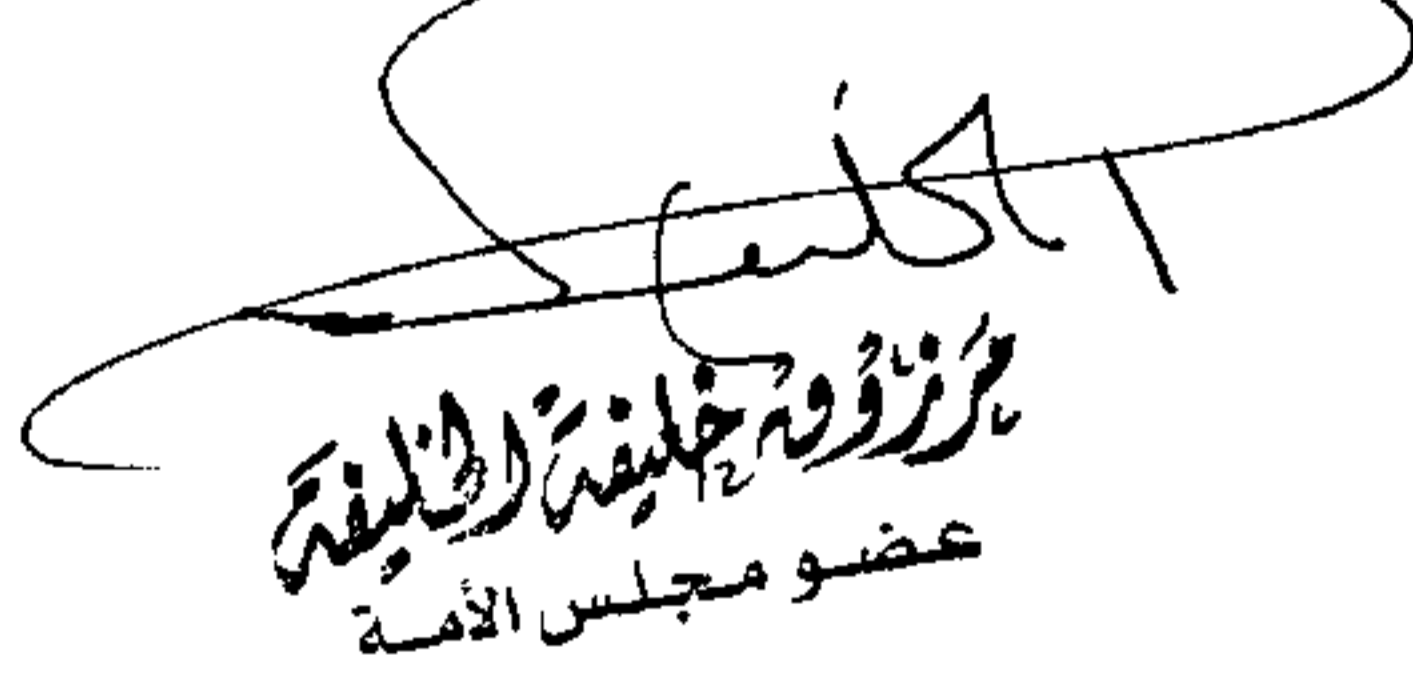 مرزوق خليفة الخليفة
عضو مجلس الأمة